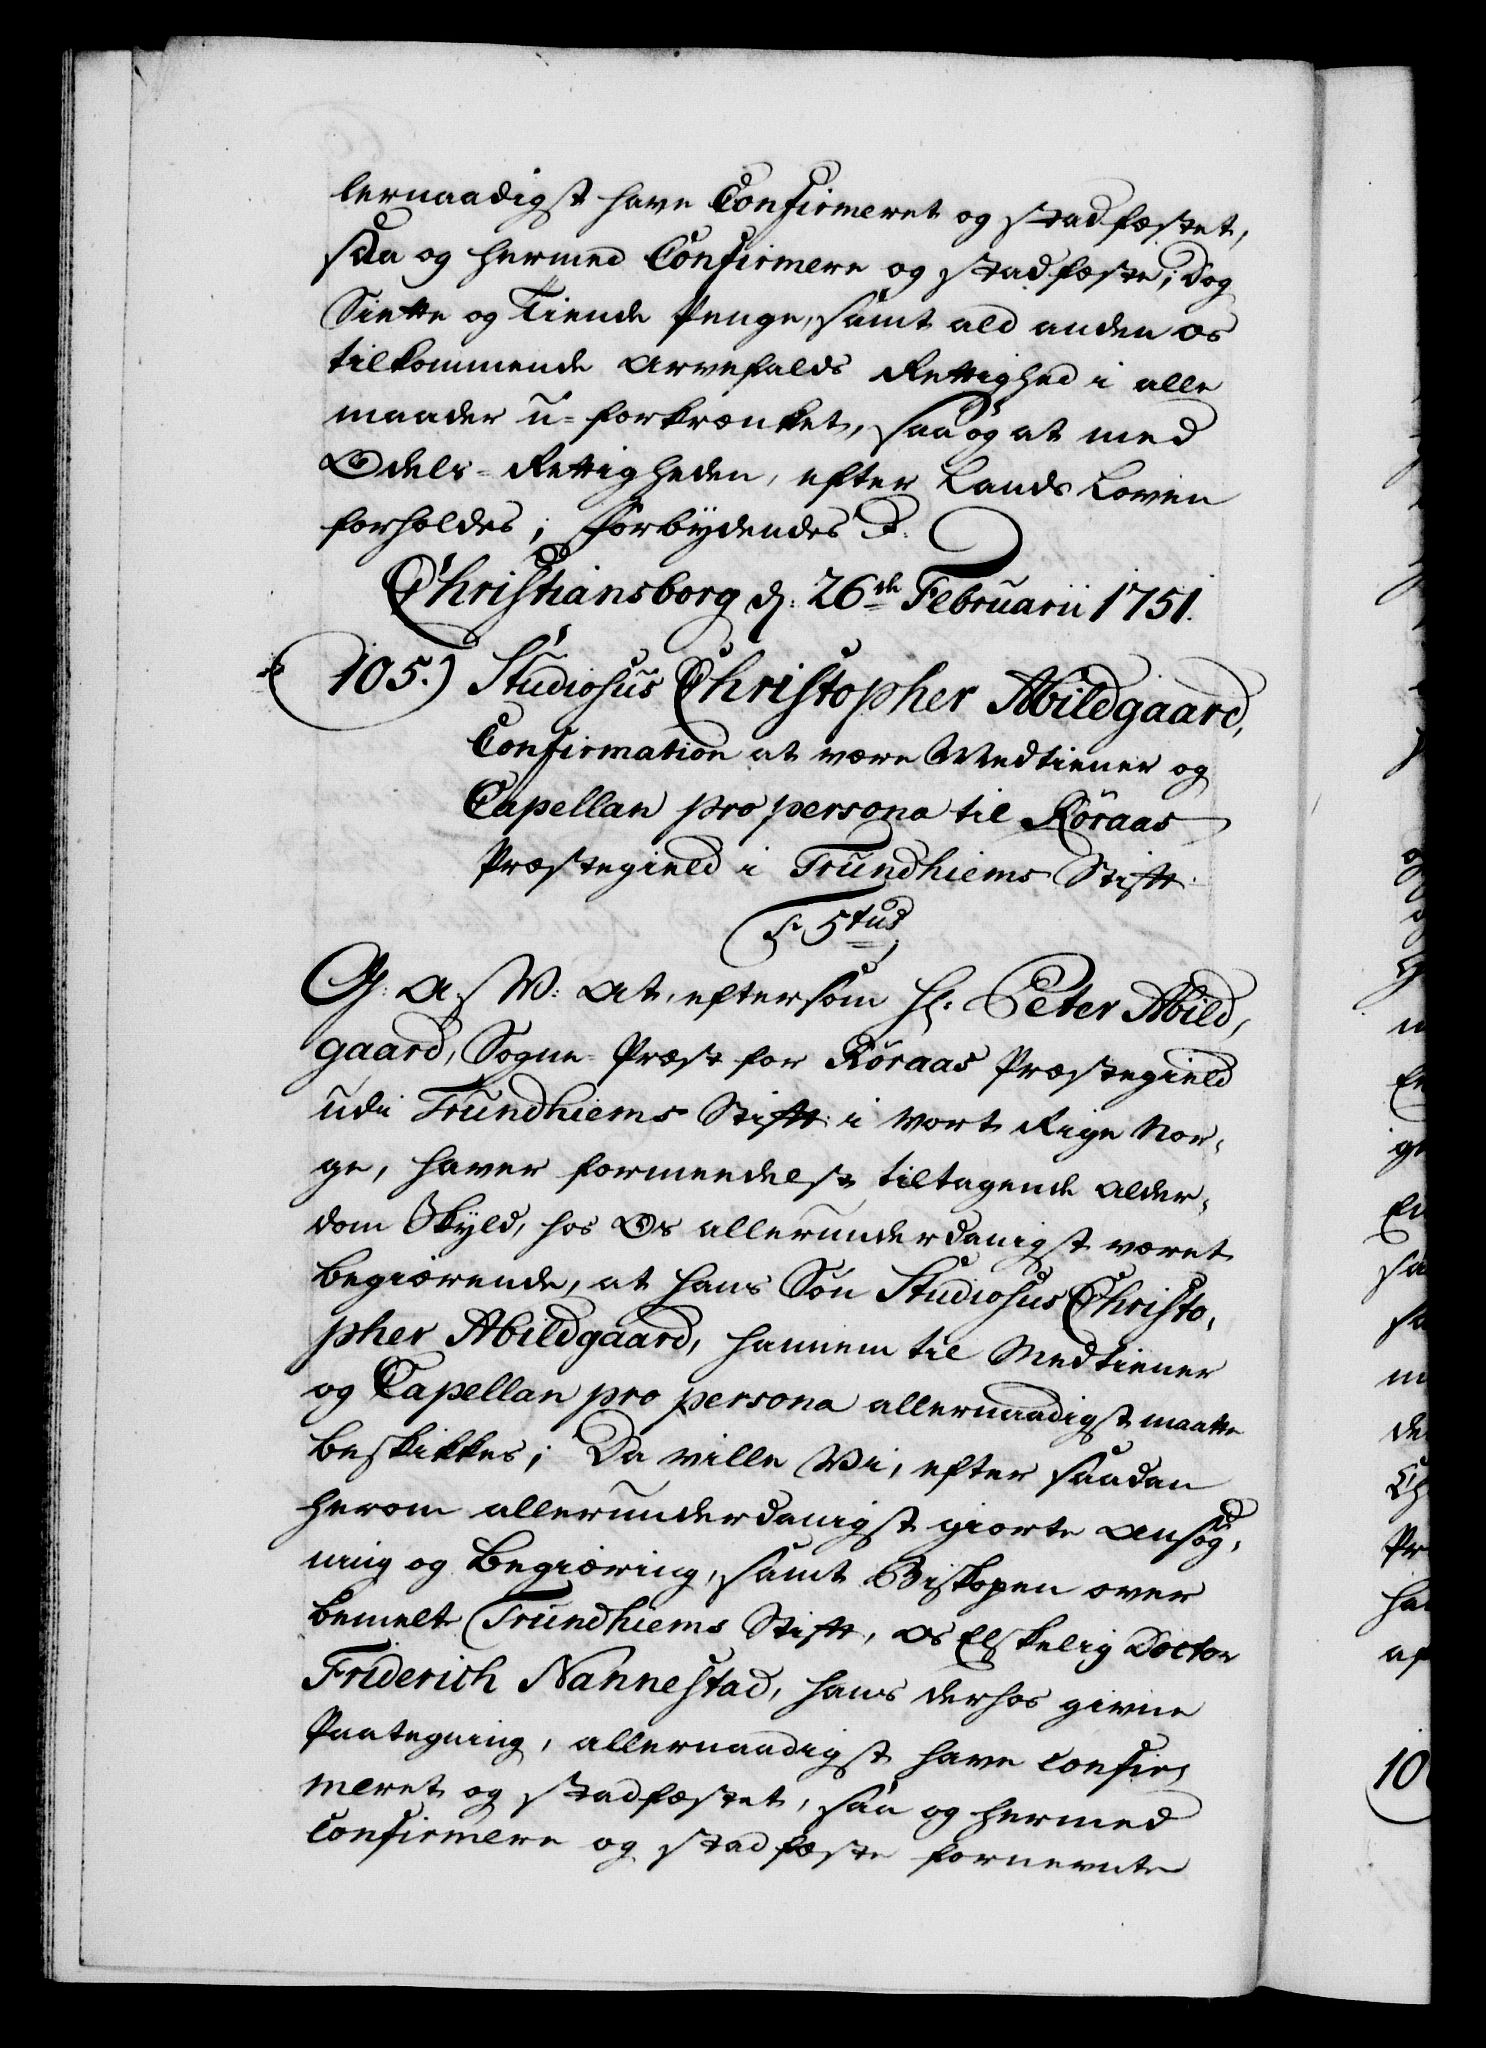 lernaadigst have Confirmeret og stadfæstet,
saa og hermed Confirmere og stadfæste; Dog
Siette og Tiende Penge, samt ald anden os
tilkommende Arvefalds Rettighed i alle
maader u-forkrænket, saa og at med
Odels-Rettigheden, efter Lands Loven
forholdes; Forbÿdendes &.
Christiansborg d: 26de Februarii 1751.
105.) Studiosus Christopher Abildgaard,
Confirmation at være Medtiener og
Capellan pro persona til Röraas
Præstegield i Trundhiems Stift.
G: A: V: At, eftersom Hr: Peter Abild,
gaard, Sogne-Præst for Röraas Præstegield
udi Trundhiems Stift i Vort Rige Nor,
ge, haver formedelst tiltagende Alder,
dom Skÿld, hos Os allerunderdanigst været
begiærende, at hans Sön Studiosus Christo,
pher Abildgaard, hannem til Medtiener
og Capellan pro persona allernaadigst maatte
beskikkes; Da ville Vi, efter saadan
herom allerunderdanigst giorte Ansög,
ning og Begiæring, samt Biskopen over
bemelte Trundhiems Stift, Os Elskelig Doctor
Friderich Nannestad, hans derhos givne
Paategning, allernaadigst have Confir,
meret og stadfæstet, saa og hermed
Confirmere og stadfæste fornevnte